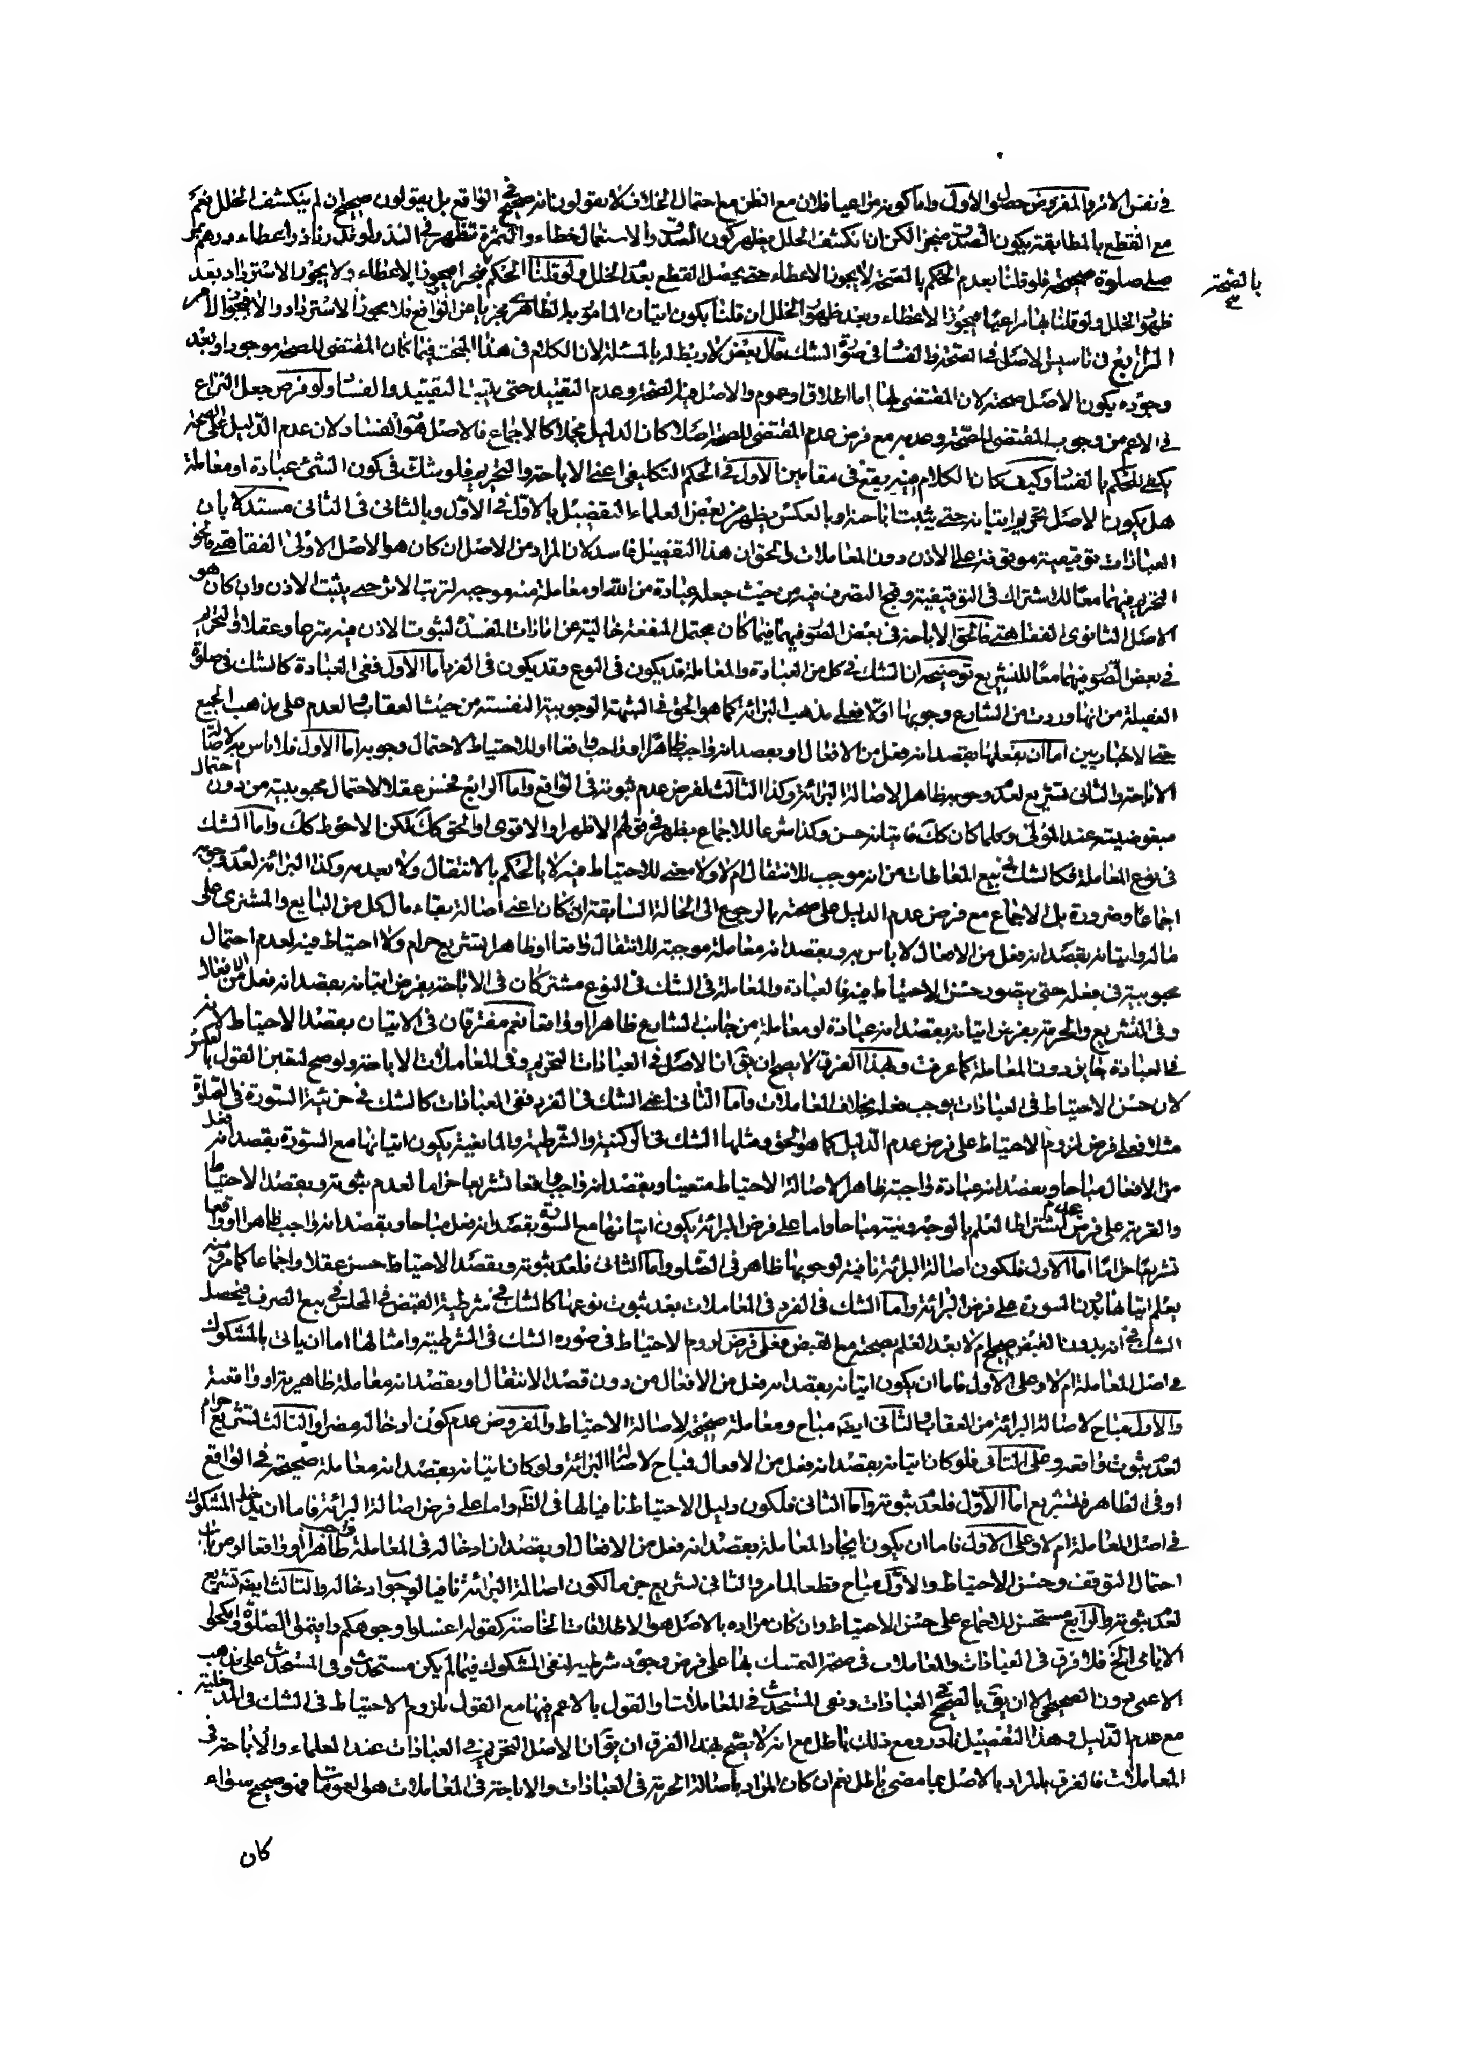 في نفس الامر والمفروض حصول الاول واما كونه مراعيا فلان مع الظن مع احتمال الخلاف لا يقولون انه صحيح في الواقع بل يقولون صحيح ان لم ينكشف الخلل نعم
مع القطع بالمطابقة يكون الصدق منجزا لكن ان انكشف الخلل يظهر كون الصدق والاستعمال خطاء والثمرة تظهر في النذر لو نذر ناذر اعطاء درهم لمن
صلى صلوة صحيحة فلو قلنا بعدم الحكم بالصحة لا يجوز الاعطاء حتى يحصل القطع بعدم الخلل ولو قلنا الحكم منجزا فيجوز الاعطاء ولا يجوز الاسترداد بعد
بالصحة
ظهور الخلل ولو قلنا بها مراعيا فيجوز الاعطاء وبعد ظهور الخلل ان قلنا بكون اتيان المامور به الظاهري مجزيا عن الواقع فلا يجوز الاسترداد والا فيجوز الامر
الرابع في تاسيس الاصل في الصحة والفساد في صورة الشك قال بعض لا ربط له بالمسئلة لان الكلام في هذا المبحث فيما كان المقتضي للصحة موجودا وبعد
وجوده يكون الاصل صحته لان المقتضي لها اما اطلاق او عموم والاصل فيه الصحة وعدم التقييد حتى يثبت التقييد والفساد ولو فرض جعل النزاع
في الاعم من وجوب المقتضي للصحة وعدمه مع فرض عدم المقتضي للصحة اصلا كان الدليل مجملا كالاجماع فالاصل هو الفساد لان عدم الدليل على الصحة
يكفي للحكم بالفساد وكيف كان الكلام فيه يقع في مقامين الاول في الحكم التكليفي اعني الاباحة والتحريم فلو شك في كون الشئ عبادة او معاملة
هل يكون الاصل تحريم اتيانه حتى يثبت اباحته او بالعكس يظهر من بعض العلماء التفصيل بالاول في الاول وبالثاني في الثاني مستدلا بان
العبادات توقيفية موقوفة على الاذن دون المعاملات والحق ان هذا التفصيل فاسد لان المراد من الاصل ان كان هو الاصل الاولى الفقاهتي فالحق
التحريم فيهما معا للاشتراك في التوقيفية وقبح التصرف فيه من حيث جعله عبادة من الله او معاملة منه موجبه لترتب الاثر حتى يثبت الاذن وان كان هو
الاصل الثانوي الفقاهتي فالحق الاباحة في بعض الصور فيهما فيما كان محتمل المنفعة خالية عن امارات المفسدة لثبوت الاذن فيه شرعا وعقلا والتحريم
في بعض الصور فيهما معا للتشريع توضيحه ان الشك في كل من العبادة والمعاملة قد يكون في النوع وقد يكون في الفرد اما الاول ففي العبادة كالشك في صلوة
الغفيلة من انها وردت من الشارع وجوبها او لا فعلى مذهب البرائة كما هو الحق في الشبهة الوجوبية النفسية من حيث العقاب والعدم على مذهب الجميع
حتى الاخباريين اما ان يفعلها بقصد انه فعل من الافعال او بقصد انه واجب ظاهرا او واجب واقعا او للاحتياط لاحتمال وجوبه اما الاول فلا باس به لاصالة
الاباحة والثاني تشريع لعدم وجوبه ظاهرا لاصالة البرائة وكذا الثالث لفرض عدم ثبوته في الواقع واما الرابع فحسن عقلا لاحتمال محبوبيته من دون احتمال
مبغوضيته عند المولى وكلما كان كك فاتيانه حسن وكذا شرعا للاجماع يظهر في قولهم الاظهر او الاقوى او الحق كك لكن الاحوط كك واما الشك
في نوع المعاملة فكالشك في بيع المعاطات من انه موجب للانتقال ام لا ولا معنى للاحتياط فيه لا بالحكم بالانتقال ولا بعدمه وكذا البرائة لعدم وجوبه
اجماعا وضرورة بل الاجماع مع فرض عدم الدليل على صحته بالرجوع الى الحالة السابقة ان كان اعني اصالة بقاء مال كل من البايع والمشتري على
ماله واتيانه بقصد انه فعل من الافعال لا باس به وبقصد انه معاملة موجبة للانتقال واقعا او ظاهرا تشريع حرام ولا احتياط فيه لعدم احتمال
محبوبية في فعله حتى يتصور حسن الاحتياط فيه فالعبادة والمعاملة في الشك في النوع مشتركان في الاباحة بفرض اتيانه بقصد انه فعل من الافعال
وفي التشريع والحرمة بفرض اتيانه بقصد انه عبادة او معاملة من جانب الشارع ظاهرا او واقعا نعم مفترقان في الاتيان بقصد الاحتياط لانه
في العبادة جايز دون المعاملة كما عرفت وبهذا الفرق لا يصح ان يق ان الاصل في العبادات التحريم وفي المعاملات الاباحة ولو صح لتعين القول بالعكس
لان حسن الاحتياط في العبادات يوجب فعله بخلاف المعاملات واما الثاني اعني الشك في الفرد ففي العبادات كالشك في جزئية السورة في الصلوة
مثلا فعلى فرض لزوم الاحتياط على فرض عدم الدليل كما هو الحق ومثلها الشك في الركنية والشرطية والمانعية يكون اتيانها مع السورة بقصد انه فعل
من الافعال مباحا وبقصد انه عبادة واجبة ظاهرا لاصالة الاحتياط متعينا وبقصد انه واجب واقعا تشريعا حراما لعدم ثبوته وبقصد الاحتياط
والقربة على فرض عدم اشتراط العلم بالوجه ونيته مباحا واما على فرض البرائة يكون اتيانها مع السورة بقصد انه فعل مباحا وبقصد انه واجب ظاهرا او واقعا
تشريعا حراما اما الاول فلكون اصالة البرائة نافية لوجوبها ظاهر في الصلوة واما الثاني فلعدم ثبوته وبقصد الاحتياط حسن عقلا واجماعا كما مر ومنه
يعلم اتيانها بدون السورة على فرض البرائة واما الشك في الفرد في المعاملات بعد ثبوت نوعها كالشك في شرطية القبض في المجلس في بيع الصرف فيحصل
الشك في انه بدون القبض صحيح ام لا بعد العلم بصحته مع القبض فعلى فرض لزوم الاحتياط في صورة الشك في الشرطية وامثالها اما ان ياتي بالمشكوك
في اصل المعاملة ام لا وعلى الاول فاما ان يكون اتيانه بقصد انه فعل من الافعال من دون قصد الانتقال او بقصد انه معاملة ظاهرية او واقعية
والاول مباح لاصالة البرائة من العقاب والثاني ايضا مباح ومعاملة صحيحة لاصالة الاحتياط والمفروض عدم كون ادخاله مضرا والثالث تشريع حرام
لعدم ثبوت واقعه وعلى الثاني فلو كان اتيانه بقصد انه فعل من الافعال فمباح لاصالة البرائة ولو كان اتيانه بقصد انه معاملة صحيحة في الواقع
او في الظاهر فتشريع اما الاول فلعدم ثبوته واما الثاني فلكون دليل الاحتياط نافيا لها في الظاهر واما على فرض اصالة البرائة فاما ان يدخل المشكوك
في اصل المعاملة ام لا وعلى الاول فاما ان يكون ايجاد المعاملة بقصد انه فعل من الافعال او بقصد ان ادخاله في المعاملة واجب ظاهرا او واقعا او من باب
احتمال التوقف وحسن الاحتياط والاول مباح قطعا لما مر والثاني تشريع حرام لكون اصالة البرائة نافيا لوجوب ادخاله والثالث ايضا تشريع
لعدم ثبوته والرابع مستحسن للاجماع على حسن الاحتياط وان كان مراده بالاصل هو الاطلاقات الخاصة كقوله اغسلوا وجوهكم واقيموا الصلوة وانكحوا
الايامى الخ فلا فرق في العبادات والمعاملات في صحة التمسك بها على فرض وجود شرطيه لنفي المشكوك فيما لم يكن مستحدث وفي المستحدث على مذهب
الاعمي دون الصحيحي الا ان يق بالصحيح في العبادات ونفي المستحدث في المعاملات او القول بالاعم فيها مع القول بلزوم الاحتياط في الشك في المدخلية
مع عدم الدليل وهذا التفصيل نادر ومع ذلك باطل مع انه لا يصح بهذا الفرق ان يق ان الاصل التحريم في العبادات عند العلماء والاباحة في
المعاملات فالفرق بالمراد بالاصل بما مضى باطل نعم ان كان المراد باصالة الحرمة في العبادات والاباحة في المعاملات هو العمومات فهو صحيح سواء
كان